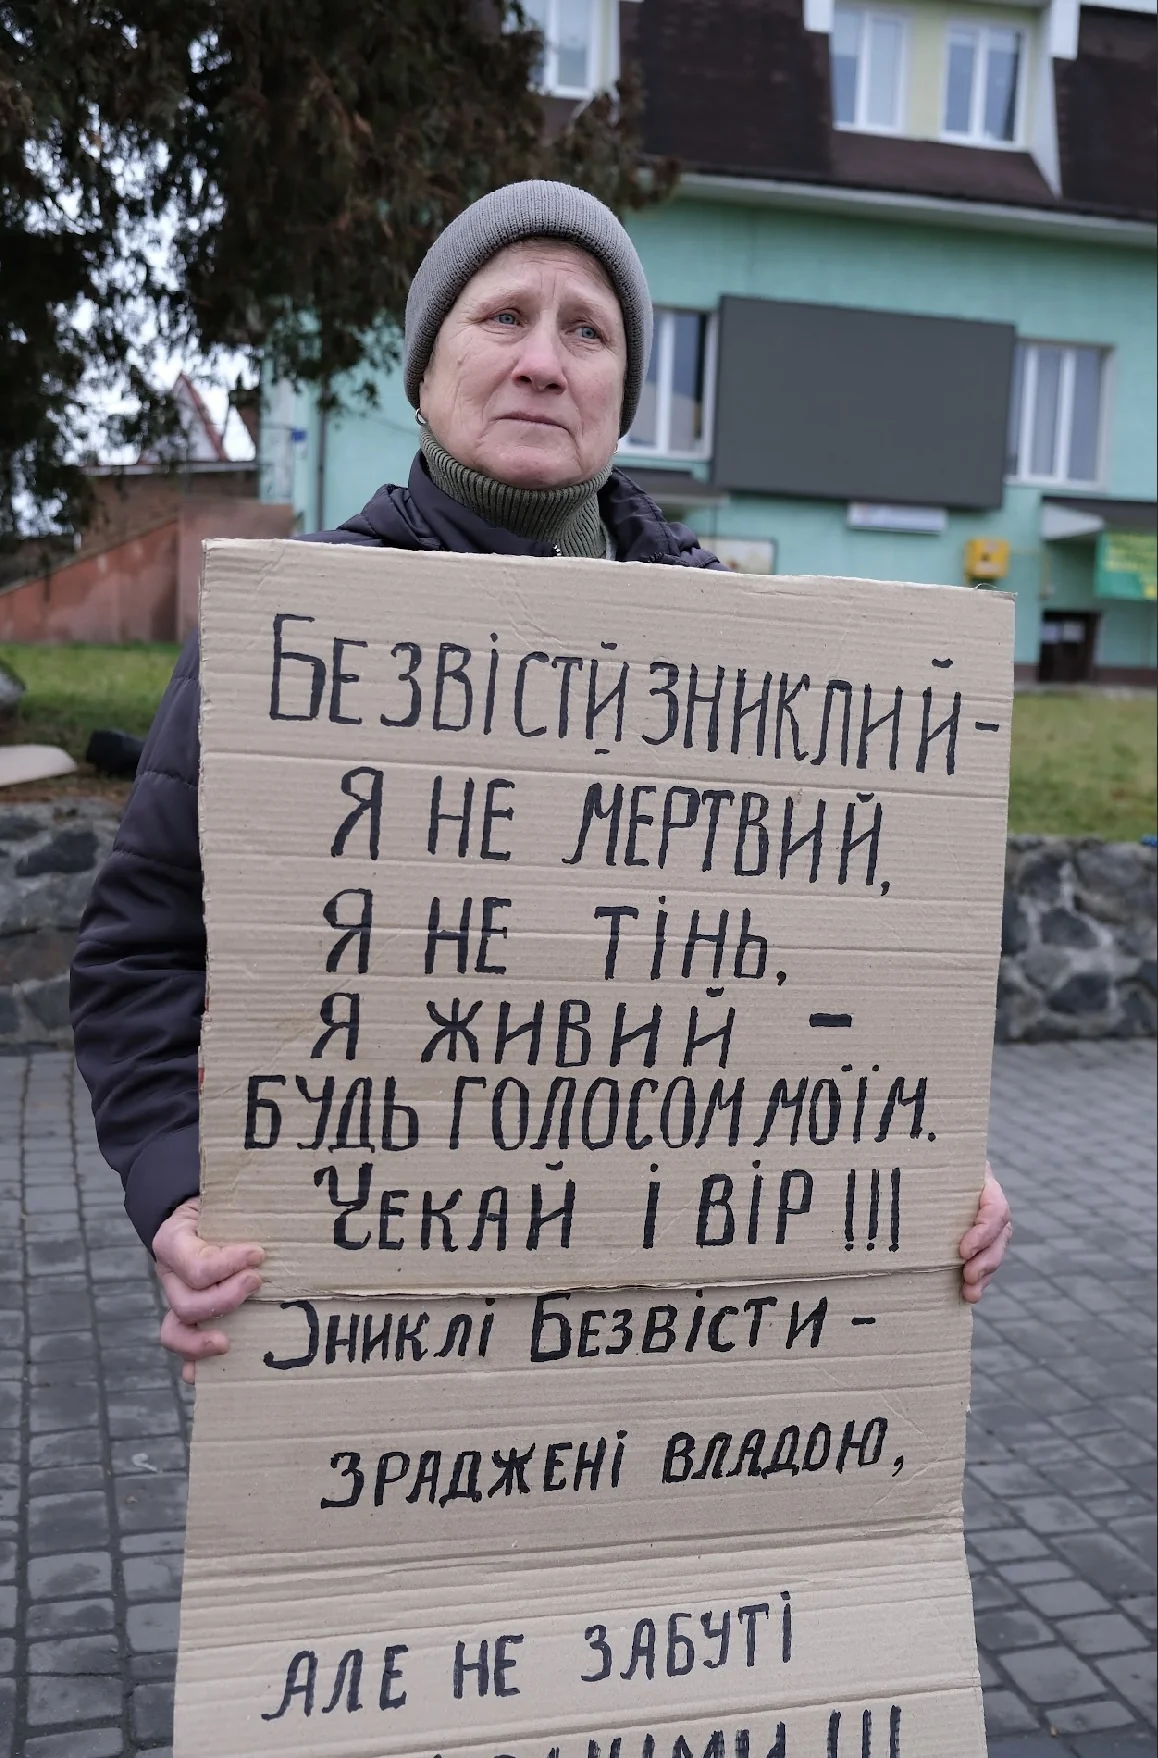 БЕЗВІСТЙ ЗНИКЛИЙ -
Я НЕ МЕРТВИЙ,
Я НЕ ТІНЬ,
Я ЖИВИЙ -
БУДЬ ГОЛОСОМ МОЇМ.
ЧЕКАЙ І ВІР !!!
ЗНИКЛІ БЕЗВІСТИ -
ЗРАДЖЕНІ ВЛАДОЮ,
АЛЕ НЕ ЗАБУТІ